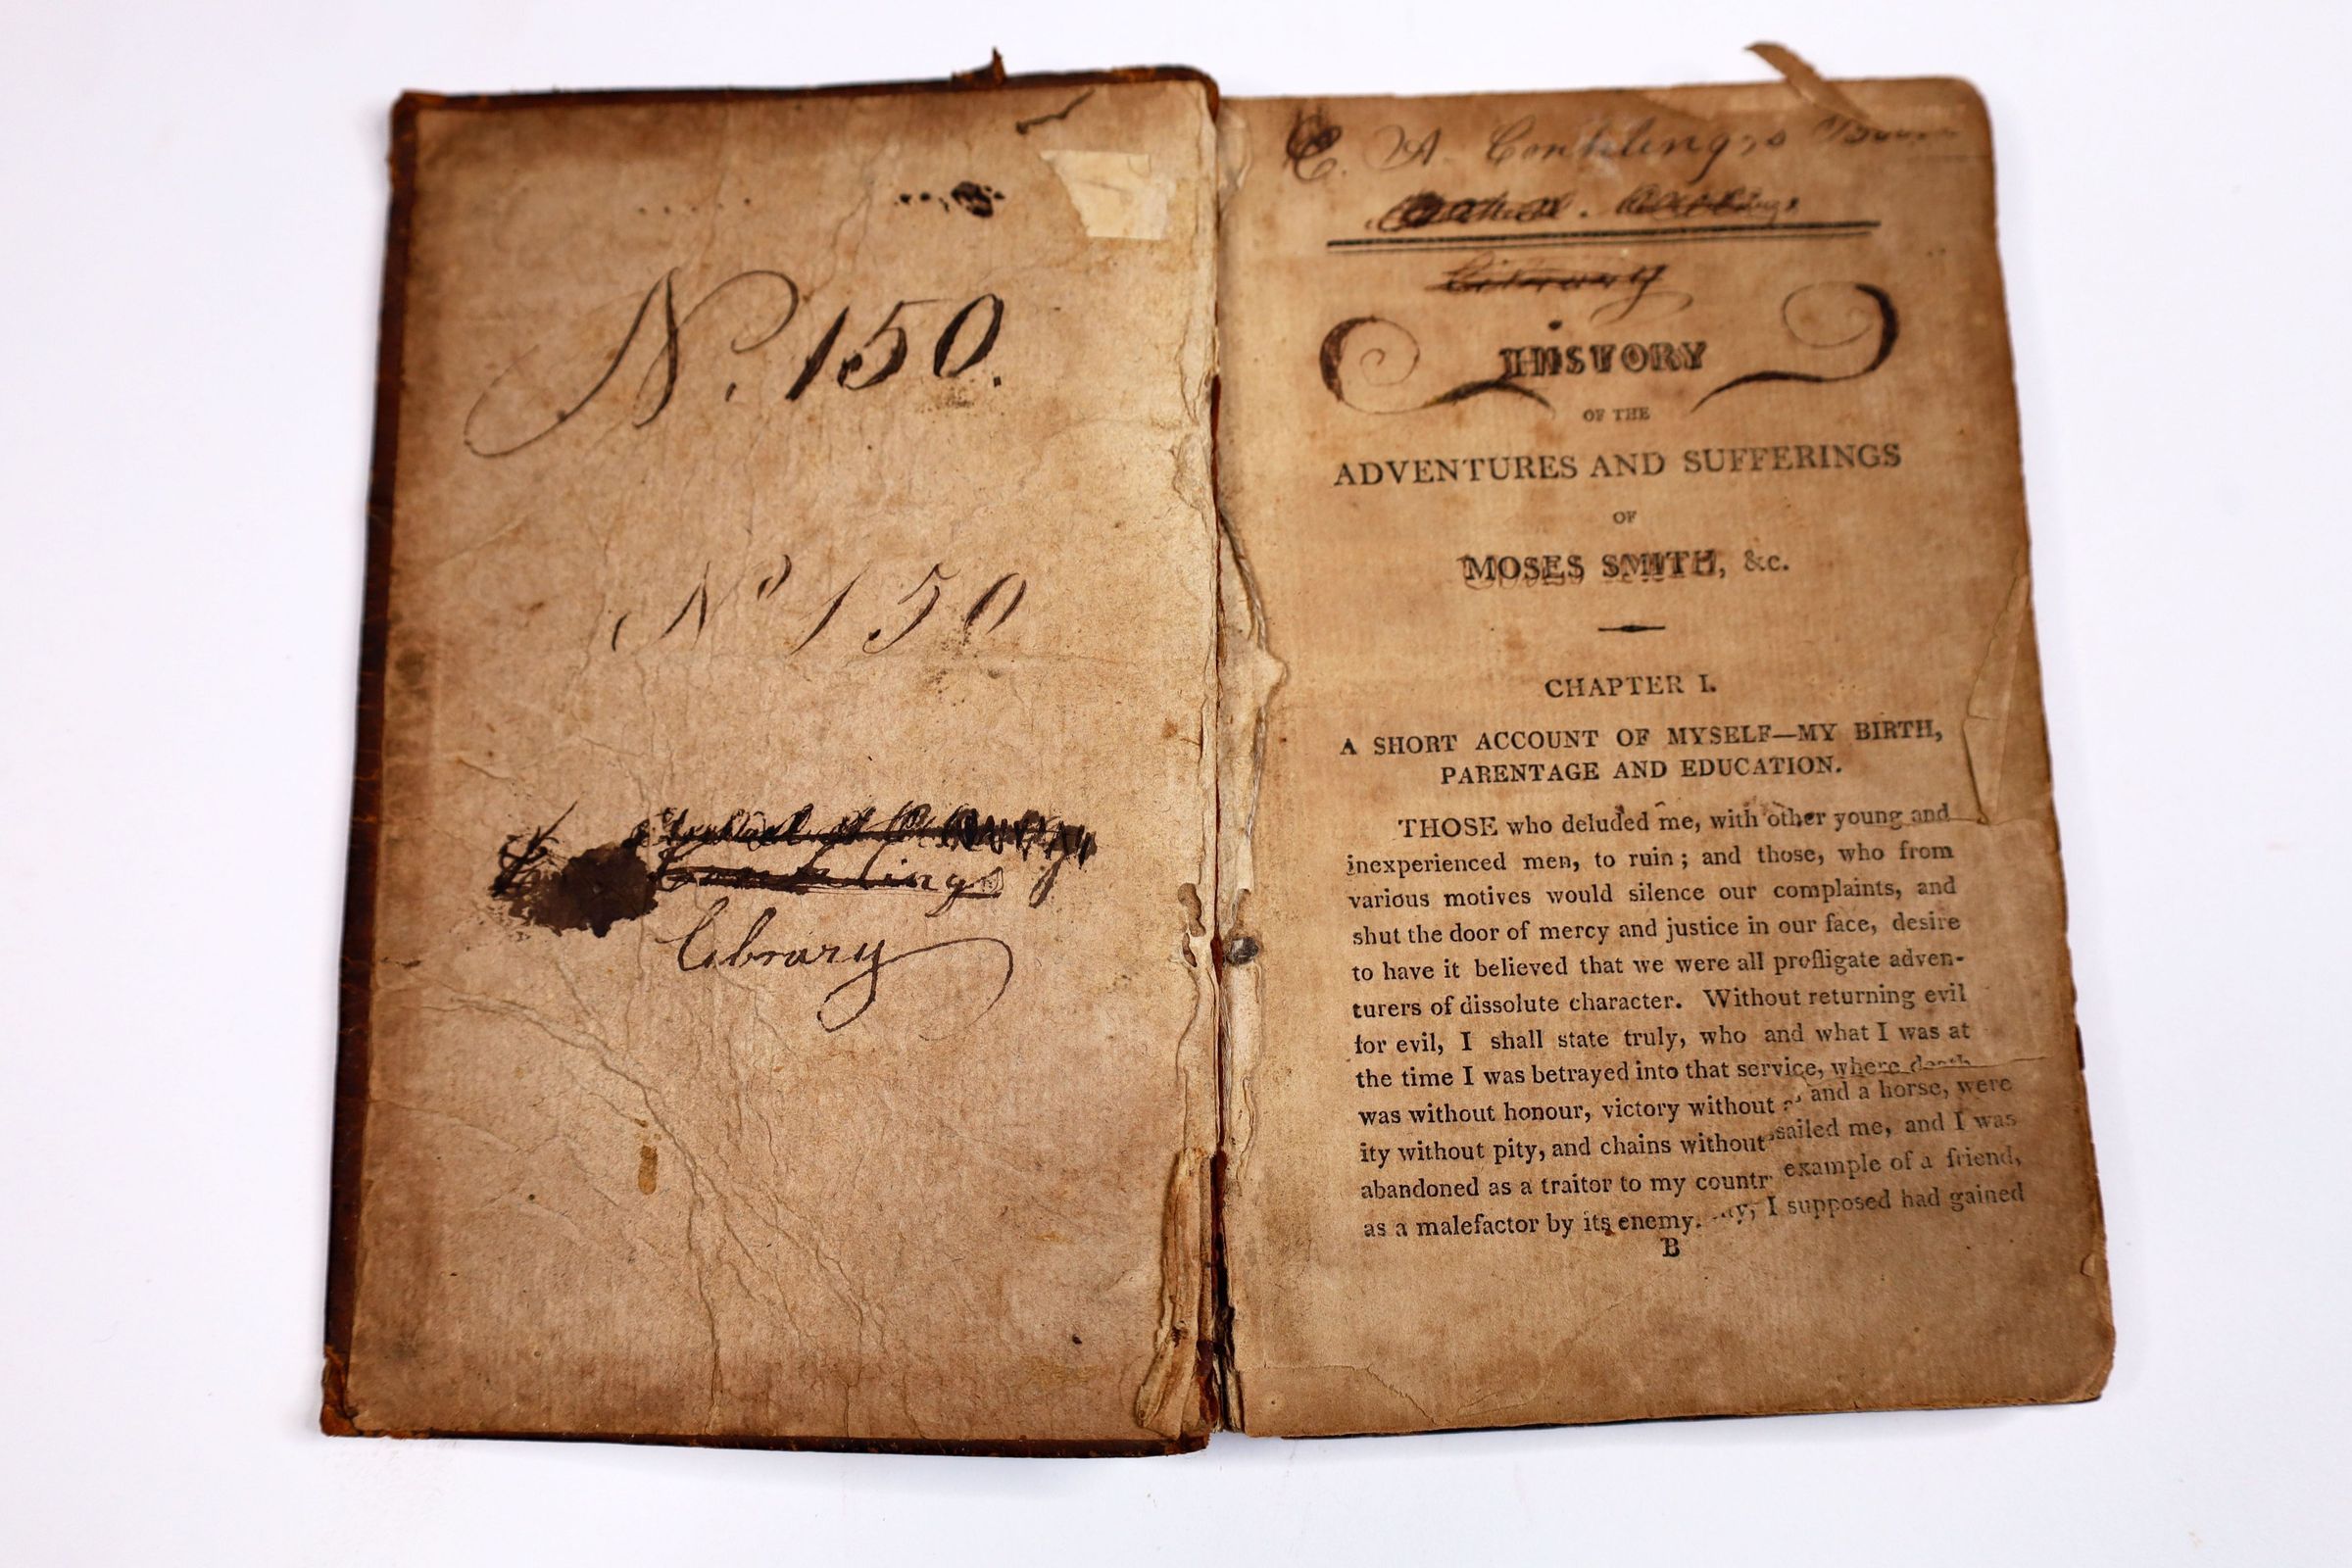 N. 150.
No 150
Conklings
Library
C. A. Conkling,s
Library
HISTORY
OF THE
ADVENTURES AND SUFFERINGS
OF
MOSES SMITH, &c.
CHAPTER I.
A SHORT ACCOUNT OF MYSELF—MY BIRTH,
PARENTAGE AND EDUCATION.
THOSE who deluded me, with other young and
inexperienced men, to ruin; and those, who from
various motives would silence our complaints, and
shut the door of mercy and justice in our face, desire
to have it believed that we were all profligate adven-
turers of dissolute character. Without returning evil
for evil, I shall state truly, who and what I was at
the time I was betrayed into that service, where death
was without honour, victory without and a horse, were
ity without pity, and chains without sailed me, and I was
abandoned as a traitor to my countr example of a friend,
as a malefactor by its enemy. I supposed had gained
B